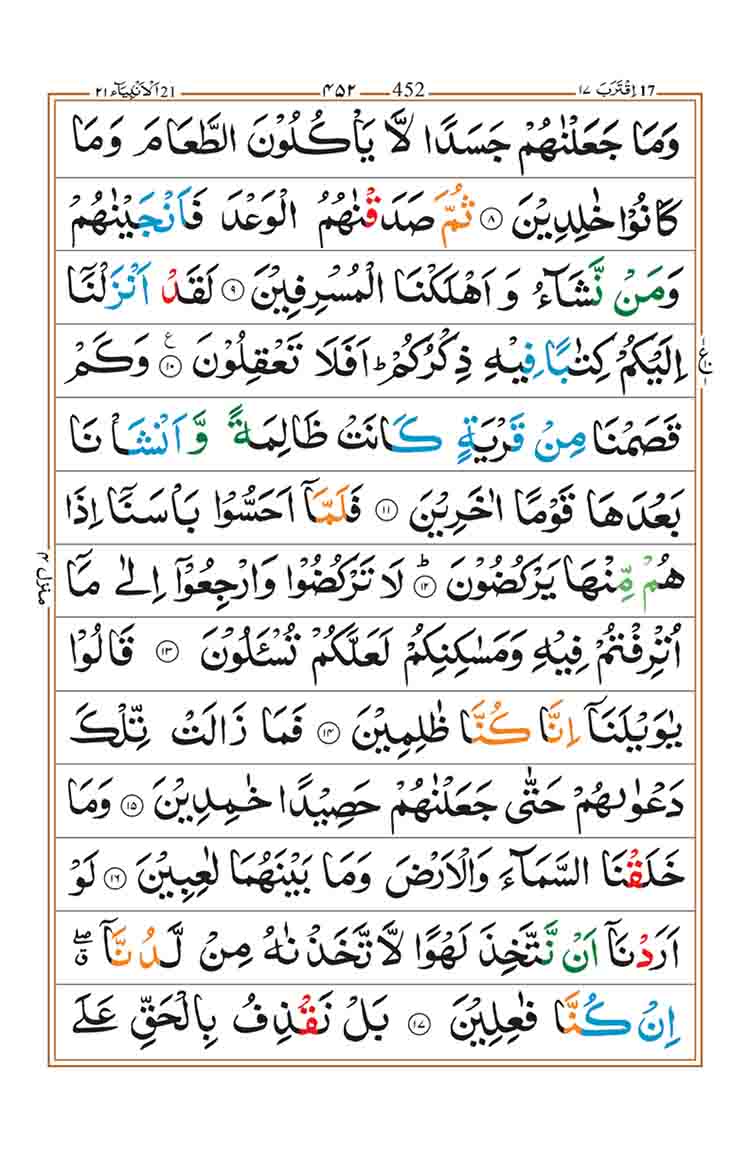 اِقْتَرَبَ ١٧ 17 452 ۴۵۲ اَلْاَنْۢبِيَآء ٢١ 21
وَمَا جَعَلْنٰهُمْ جَسَدًا لَّا يَاْكُلُوْنَ الطَّعَامَ وَمَا
كَانُوْا خٰلِدِيْنَ ٨ ثُمَّ صَدَقْنٰهُمُ الْوَعْدَ فَاَنْجَيْنٰهُمْ
وَمَنْ نَّشَآءُ وَ اَهْلَكْنَا الْمُسْرِفِيْنَ ٩ لَقَدْ اَنْزَلْنَآ
اِلَيْكُمْ كِتٰبًا فِيْهِ ذِكْرُكُمْ ؕ اَفَلَا تَعْقِلُوْنَ ١٠ ع وَكَمْ
ع
قَصَمْنَا مِنْ قَرْيَةٍ كَانَتْ ظَالِمَةً وَّ اَنْشَاْنَا
بَعْدَهَا قَوْمًا اٰخَرِيْنَ ١١ فَلَمَّآ اَحَسُّوْا بَاْسَنَآ اِذَا
هُمْ مِّنْهَا يَرْكُضُوْنَ ؕ ١٢ لَا تَرْكُضُوْا وَارْجِعُوْٓا اِلٰى مَآ
منزل ۴
اُتْرِفْتُمْ فِيْهِ وَمَسٰكِنِكُمْ لَعَلَّكُمْ تُسْـَٔلُوْنَ ١٣ قَالُوْا
يٰوَيْلَنَآ اِنَّا كُنَّا ظٰلِمِيْنَ ١٤ فَمَا زَالَتْ تِّلْكَ
دَعْوٰىهُمْ حَتّٰى جَعَلْنٰهُمْ حَصِيْدًا خٰمِدِيْنَ ١٥ وَمَا
خَلَقْنَا السَّمَآءَ وَالْاَرْضَ وَمَا بَيْنَهُمَا لٰعِبِيْنَ ١٦ لَوْ
اَرَدْنَآ اَنْ نَّتَّخِذَ لَهْوًا لَّا تَّخَذْنٰهُ مِنْ لَّدُنَّآ ۖق
اِنْ كُنَّا فٰعِلِيْنَ ١٧ بَلْ نَقْذِفُ بِالْحَقِّ عَلَى